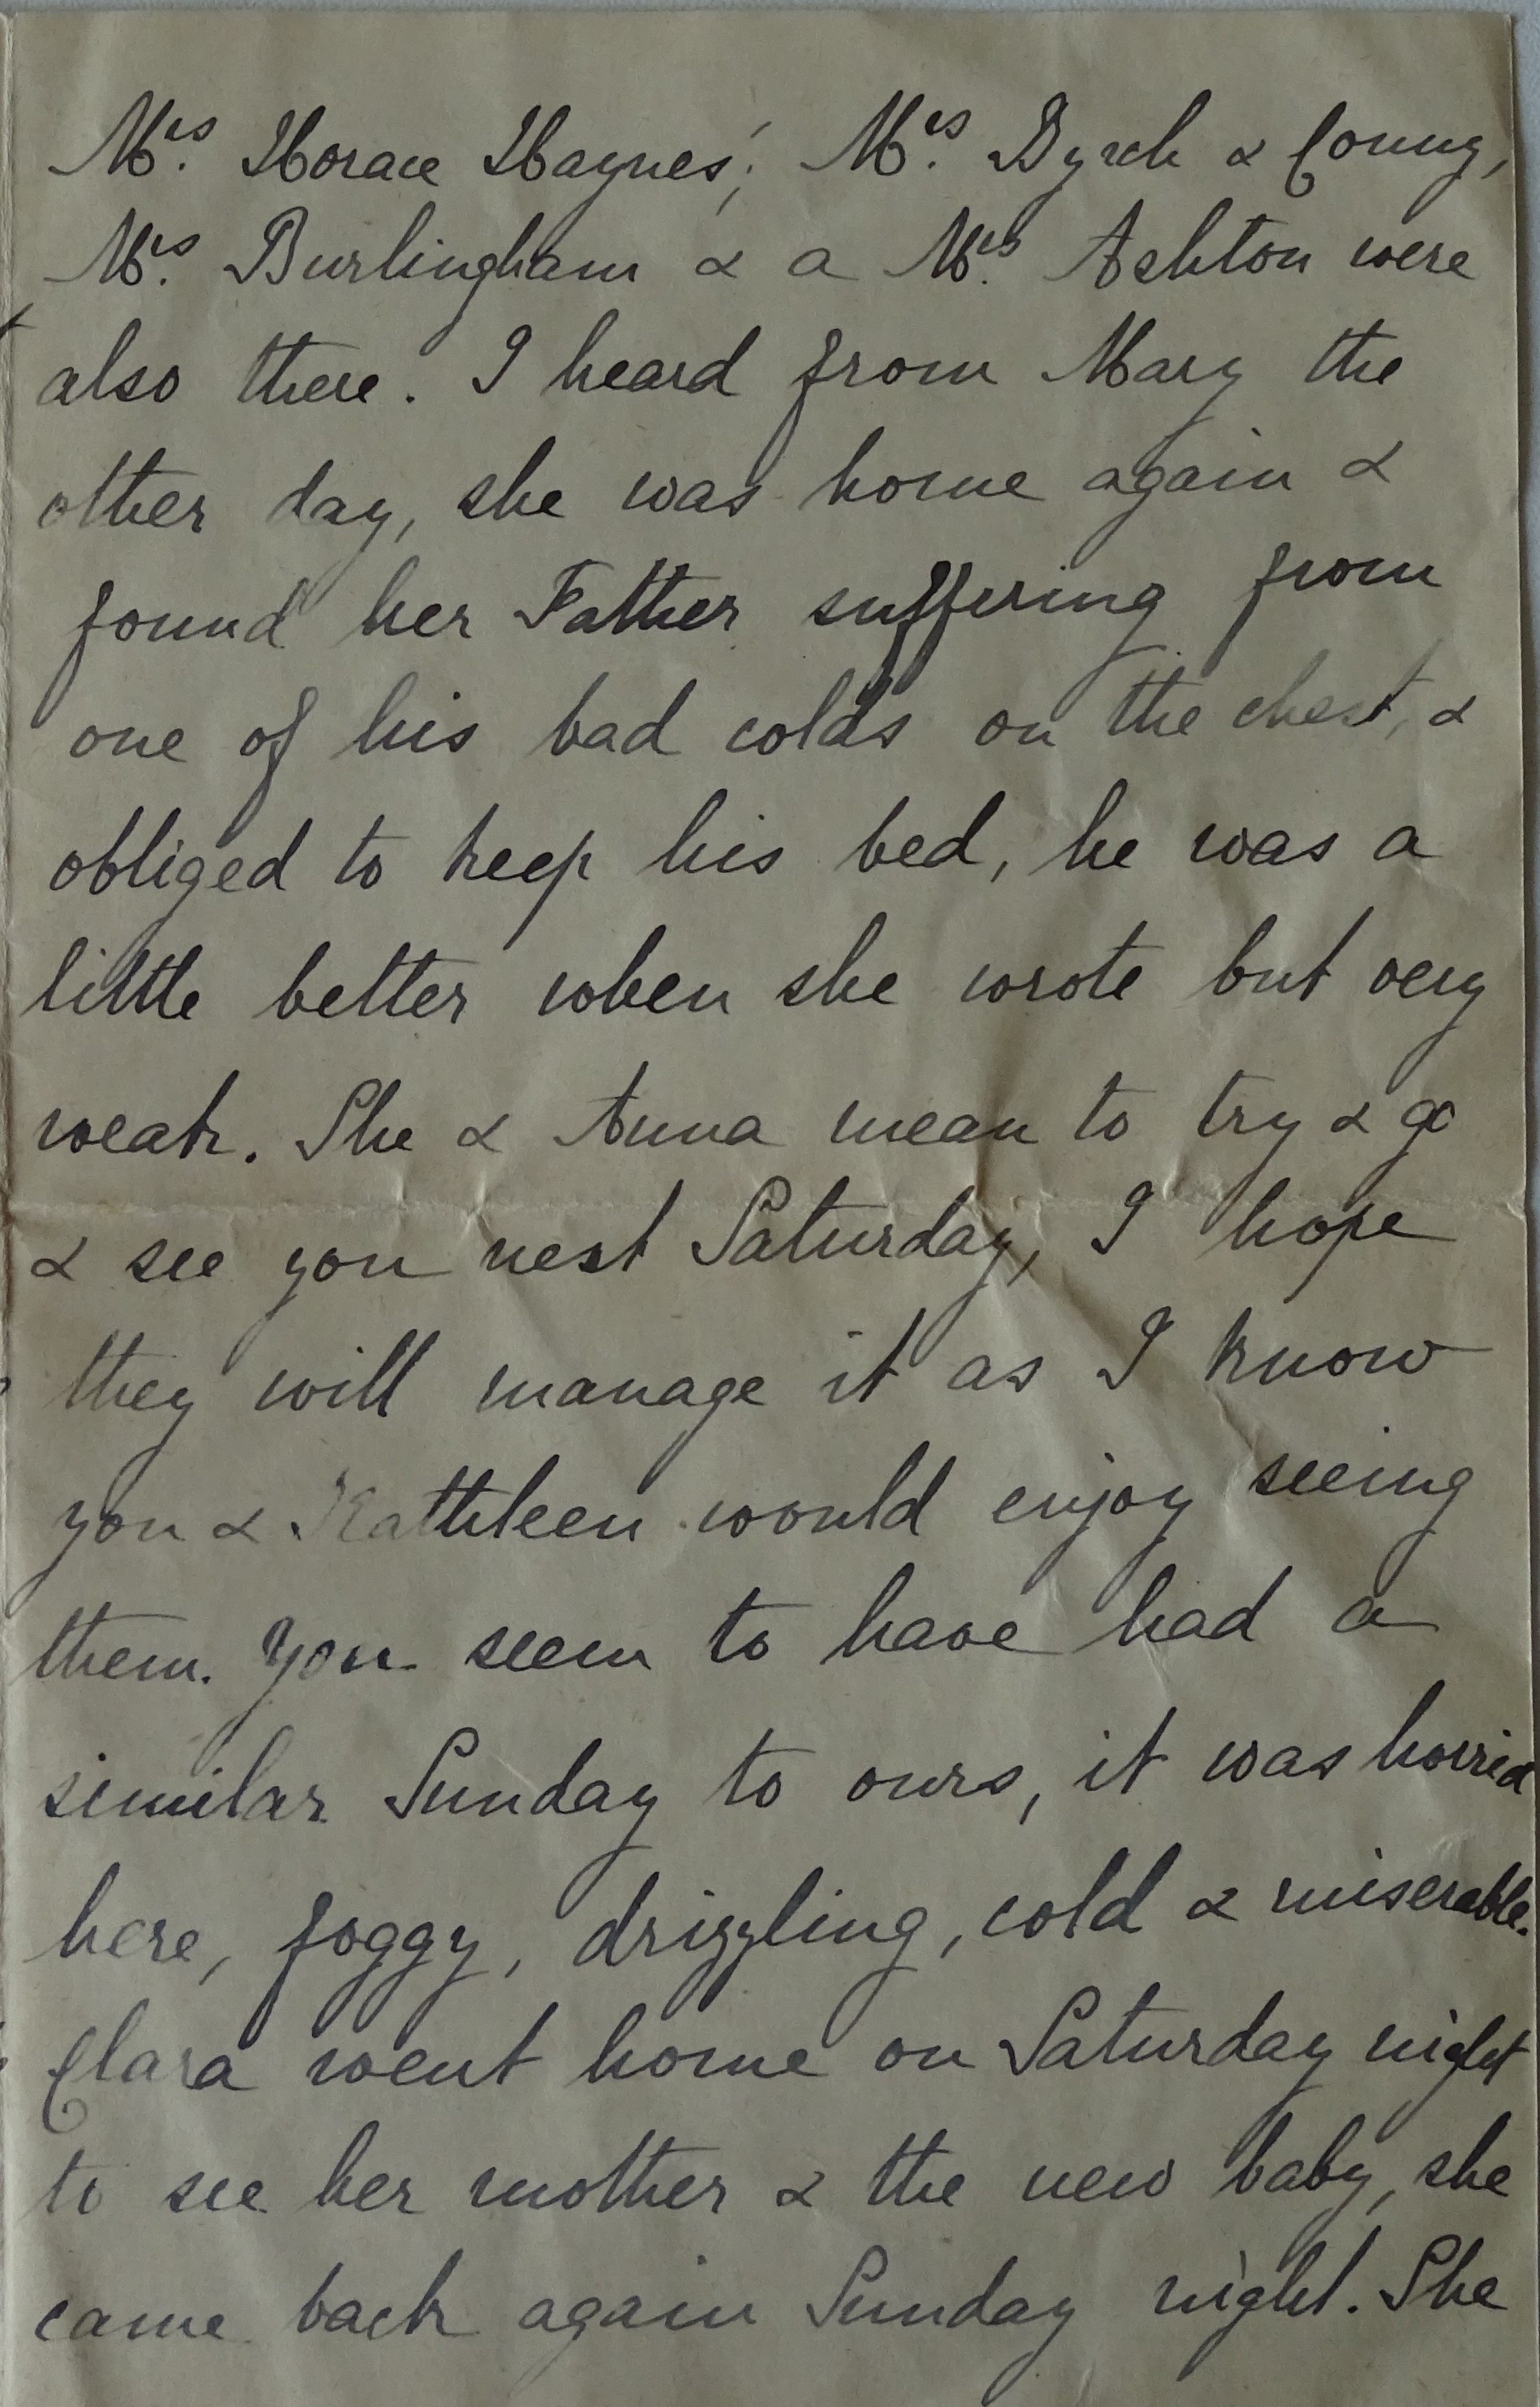 Mrs. Horace Haynes', Mrs. Dyrch & Conny,
Mrs. Burlingham & a Mrs. Ashton were
also there. I heard from Mary the
other day, she was home again &
found her Father suffering from
one of his bad colds on the chest, &
obliged to keep his bed, he was a
little better when she wrote but very
weak. She & Anna mean to try & go
& see you next Saturday, I hope
they will manage it as I know
you & Kathleen would enjoy seeing
them. You seem to have had a
similar Sunday to ours, it was horrid
here, foggy, drizzling, cold & miserable.
Clara went home on Saturday night
to see her mother & the new baby, she
came back again Sunday night. She